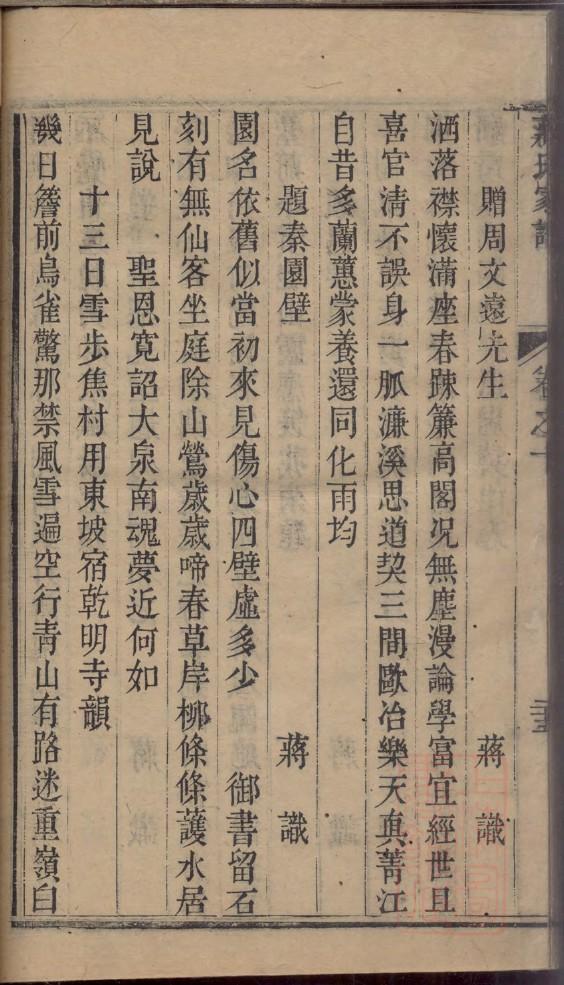 贈周文遠先生 蔣識
洒落襟懷滿座春踈簾高閣况無塵漫論學富宜經世且
喜官清不誤身一脈濂溪思道契三間歐冶樂天真菁江
自昔多蘭蕙蒙養還同化雨均
題秦園壁 蔣識
園名依舊似當初來見傷心四壁虛多少 御書留石
刻有無仙客坐庭除山鶯歲歲啼春草岸柳條條護水居
見說 聖恩寬詔大泉南魂夢近何如
十三日雪步焦村用東坡宿乾明寺韻
幾日簷前鳥雀驚那禁風雪遍空行青山有路迷重嶺白